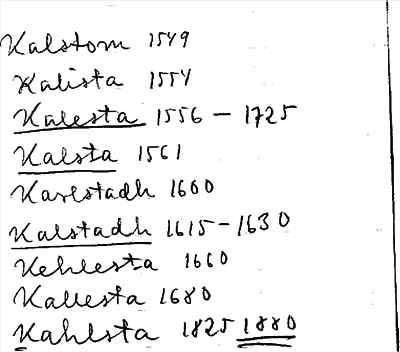 Kalstom 1549
Kalista 1554
Kalesta 1556 - 1725
Kalsta 1561
Karlstadh 1600
Kalstadh 1615-1630
Kehlesta 1660
Kallesta 1680
Kahlsta 1825 1880